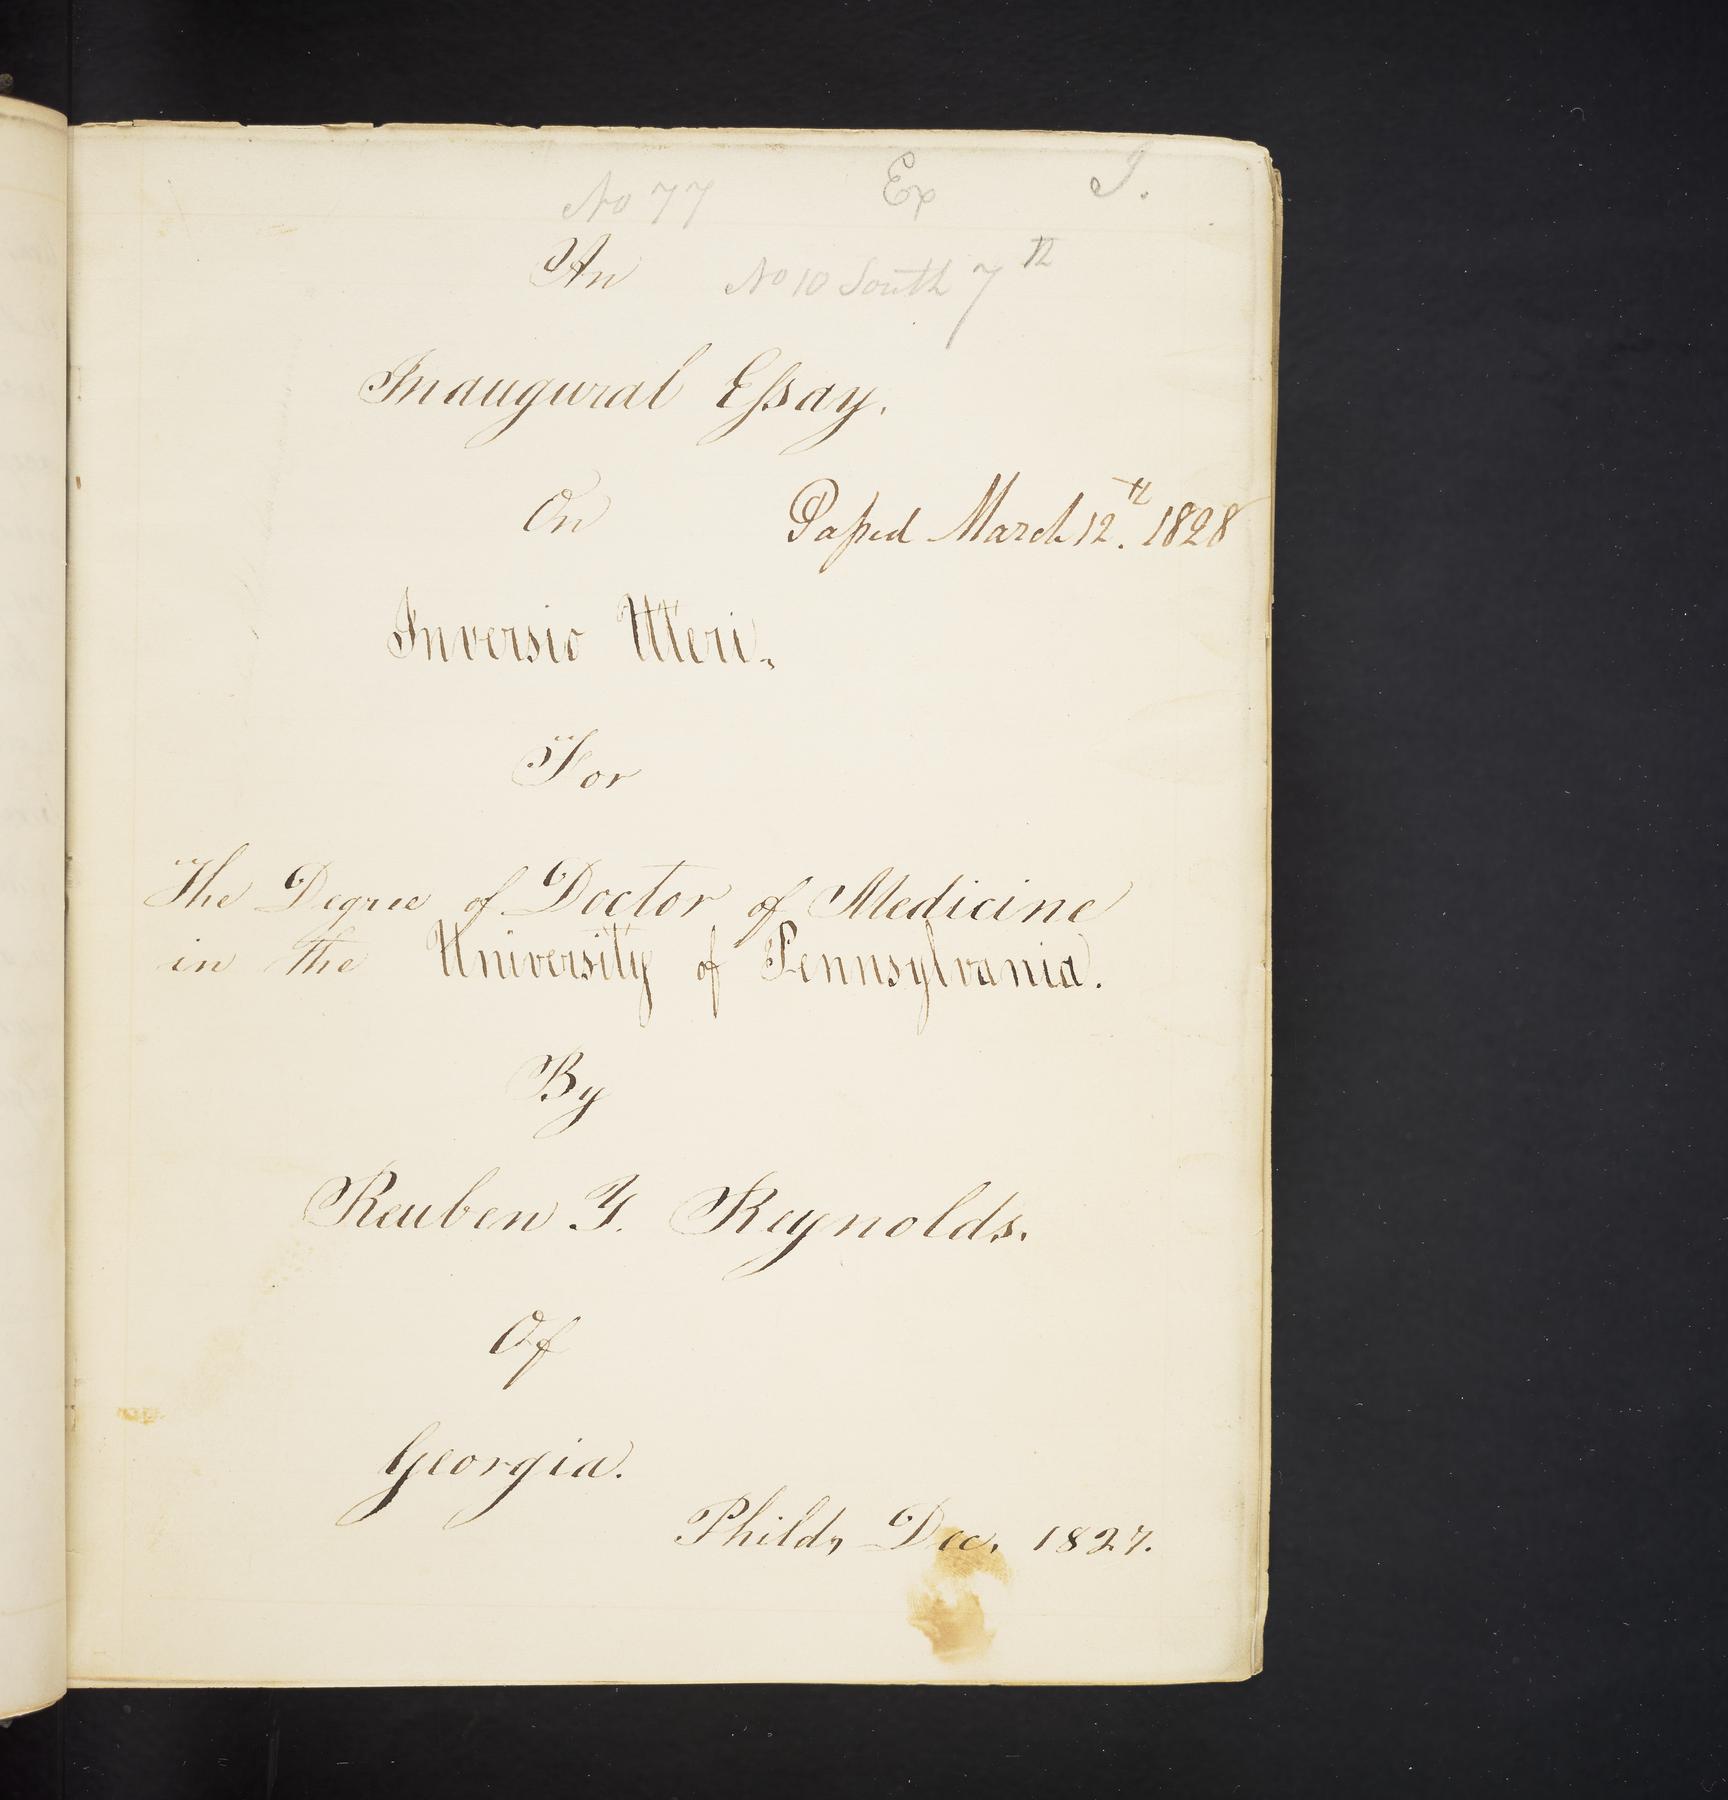 No 77 Ex I.
An No 10 South 7th
Inaugural Essay.
On Passed March 12th. 1828
Inversio Uteri.
For
The Degree of Doctor of Medicine
in the University of Pennsylvania.
By
Reuben Y. Reynolds.
Of
Georgia.
Phild, Dec, 1827.